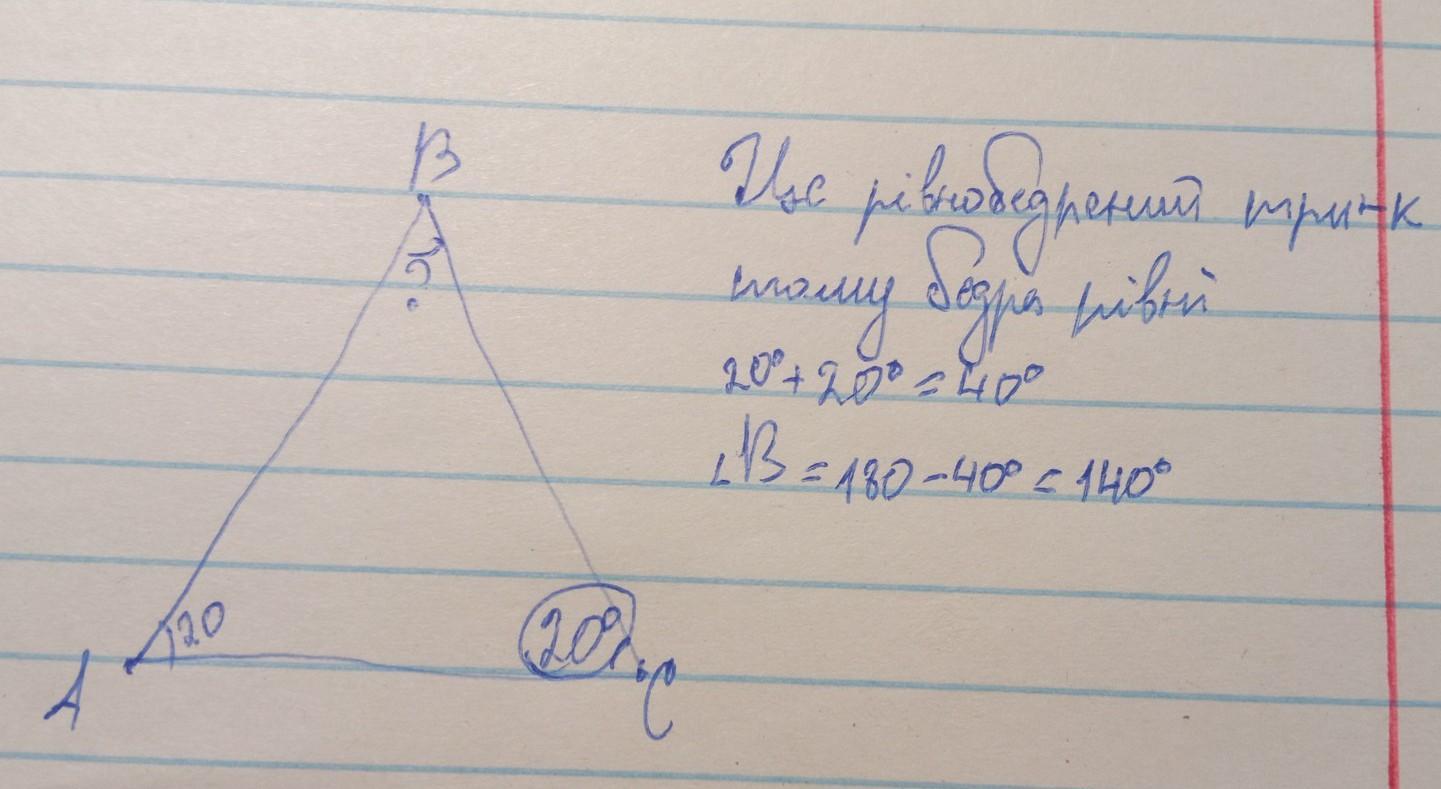 B
Це рівнобедрений трик-к
тому бедра рівні
?
20°+20°=40°
∟B=180-40°=140°
20
20°
A
C